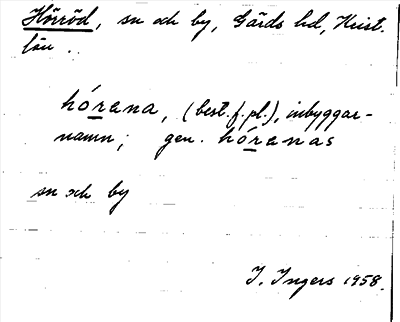 Hörröd, sn och by, Gärds hd, Krist.
län.
hórana, (best. f. pl.), inbyggar-
namn; gen. hóranas
sn och by
I. Ingers 1958.